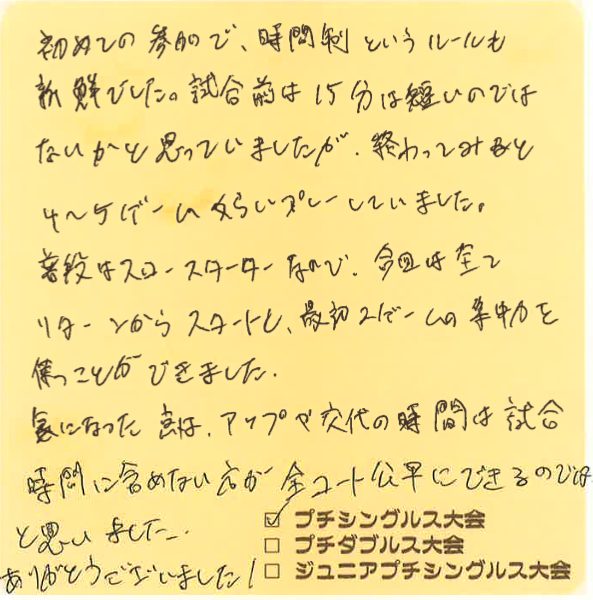 初めての参加で、時間制というルールも
新鮮でした。試合前は15分は短いのでは
ないかと思っていましたが、終わってみると
4〜5ゲームくらいプレーしていました。
普段はスロースターターなので、今回は全て
リターンからスタートし、最初2ゲームの集中力を
保つことができました。
気になった点は、アップや交代の時間は試合
時間に含めない方が全コート公平にできるのでは
と思いました。
ありがとうございました!
☑ プチシングルス大会
□ プチダブルス大会
□ ジュニアプチシングルス大会